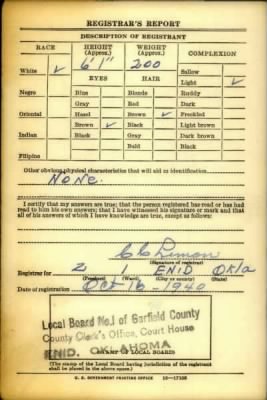 REGISTRAR'S REPORT
DESCRIPTION OF REGISTRANT
RACE HEIGHT (Approx.) WEIGHT (Approx.) COMPLEXION
White ✓ 6' 1" 200 Sallow
EYES HAIR Light ✓
Negro Blue Blonde Ruddy
Gray Red Dark
Oriental Hazel Brown ✓ Freckled
Brown ✓ Black Light brown
Indian Black Gray Dark brown
Bald Black
Filipino
Other obvious physical characteristics that will aid in identification
None.
I certify that my answers are true; that the person registered has read or has had read to him his own answers; that I have witnessed his signature or mark and that all of his answers of which I have knowledge are true, except as follows:
(Signature of registrar)
Registrar for 2 1 ENID Okla
(Precinct) (Ward) (City or county) (State)
Date of registration Oct 16 - 1940
Local Board No. 1 of Garfield County
County Clerk's Office, Court House
ENID, OKLAHOMA
(STAMP OF LOCAL BOARD)
(The stamp of the Local Board having jurisdiction of the registrant shall be placed in the above space.)
U. S. GOVERNMENT PRINTING OFFICE